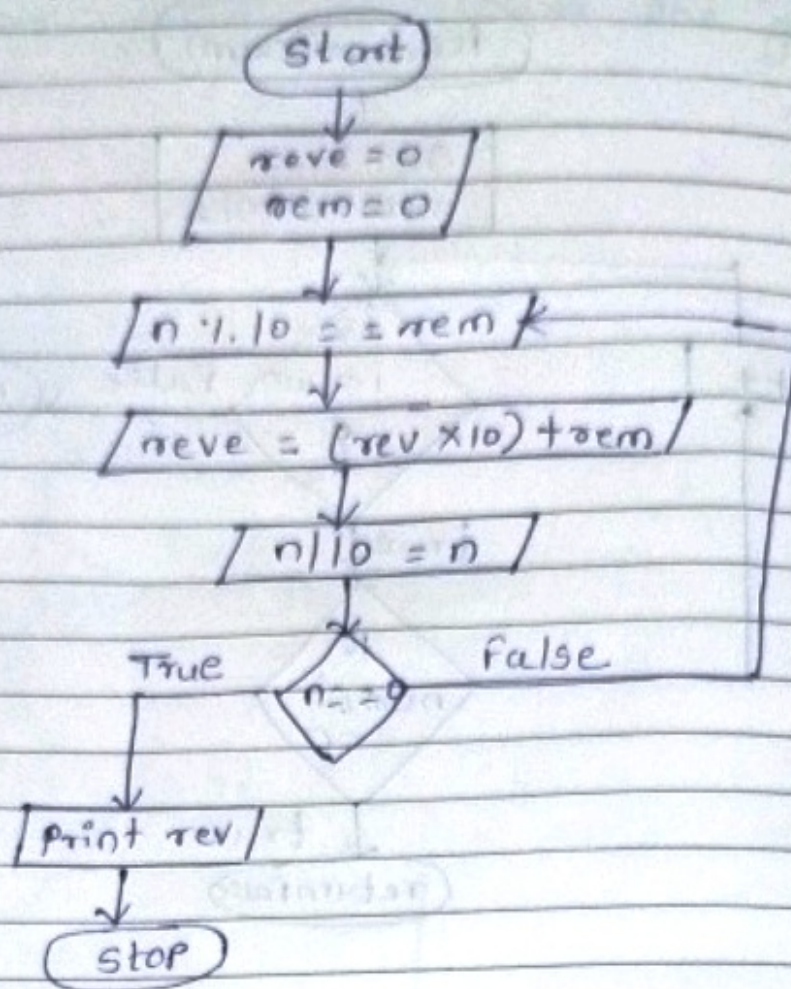 Start
reve = 0
rem = 0
n % 10 = = rem
reve = (rev × 10) + rem
n/10 = n
True
False
n = = 0
Print rev
Stop